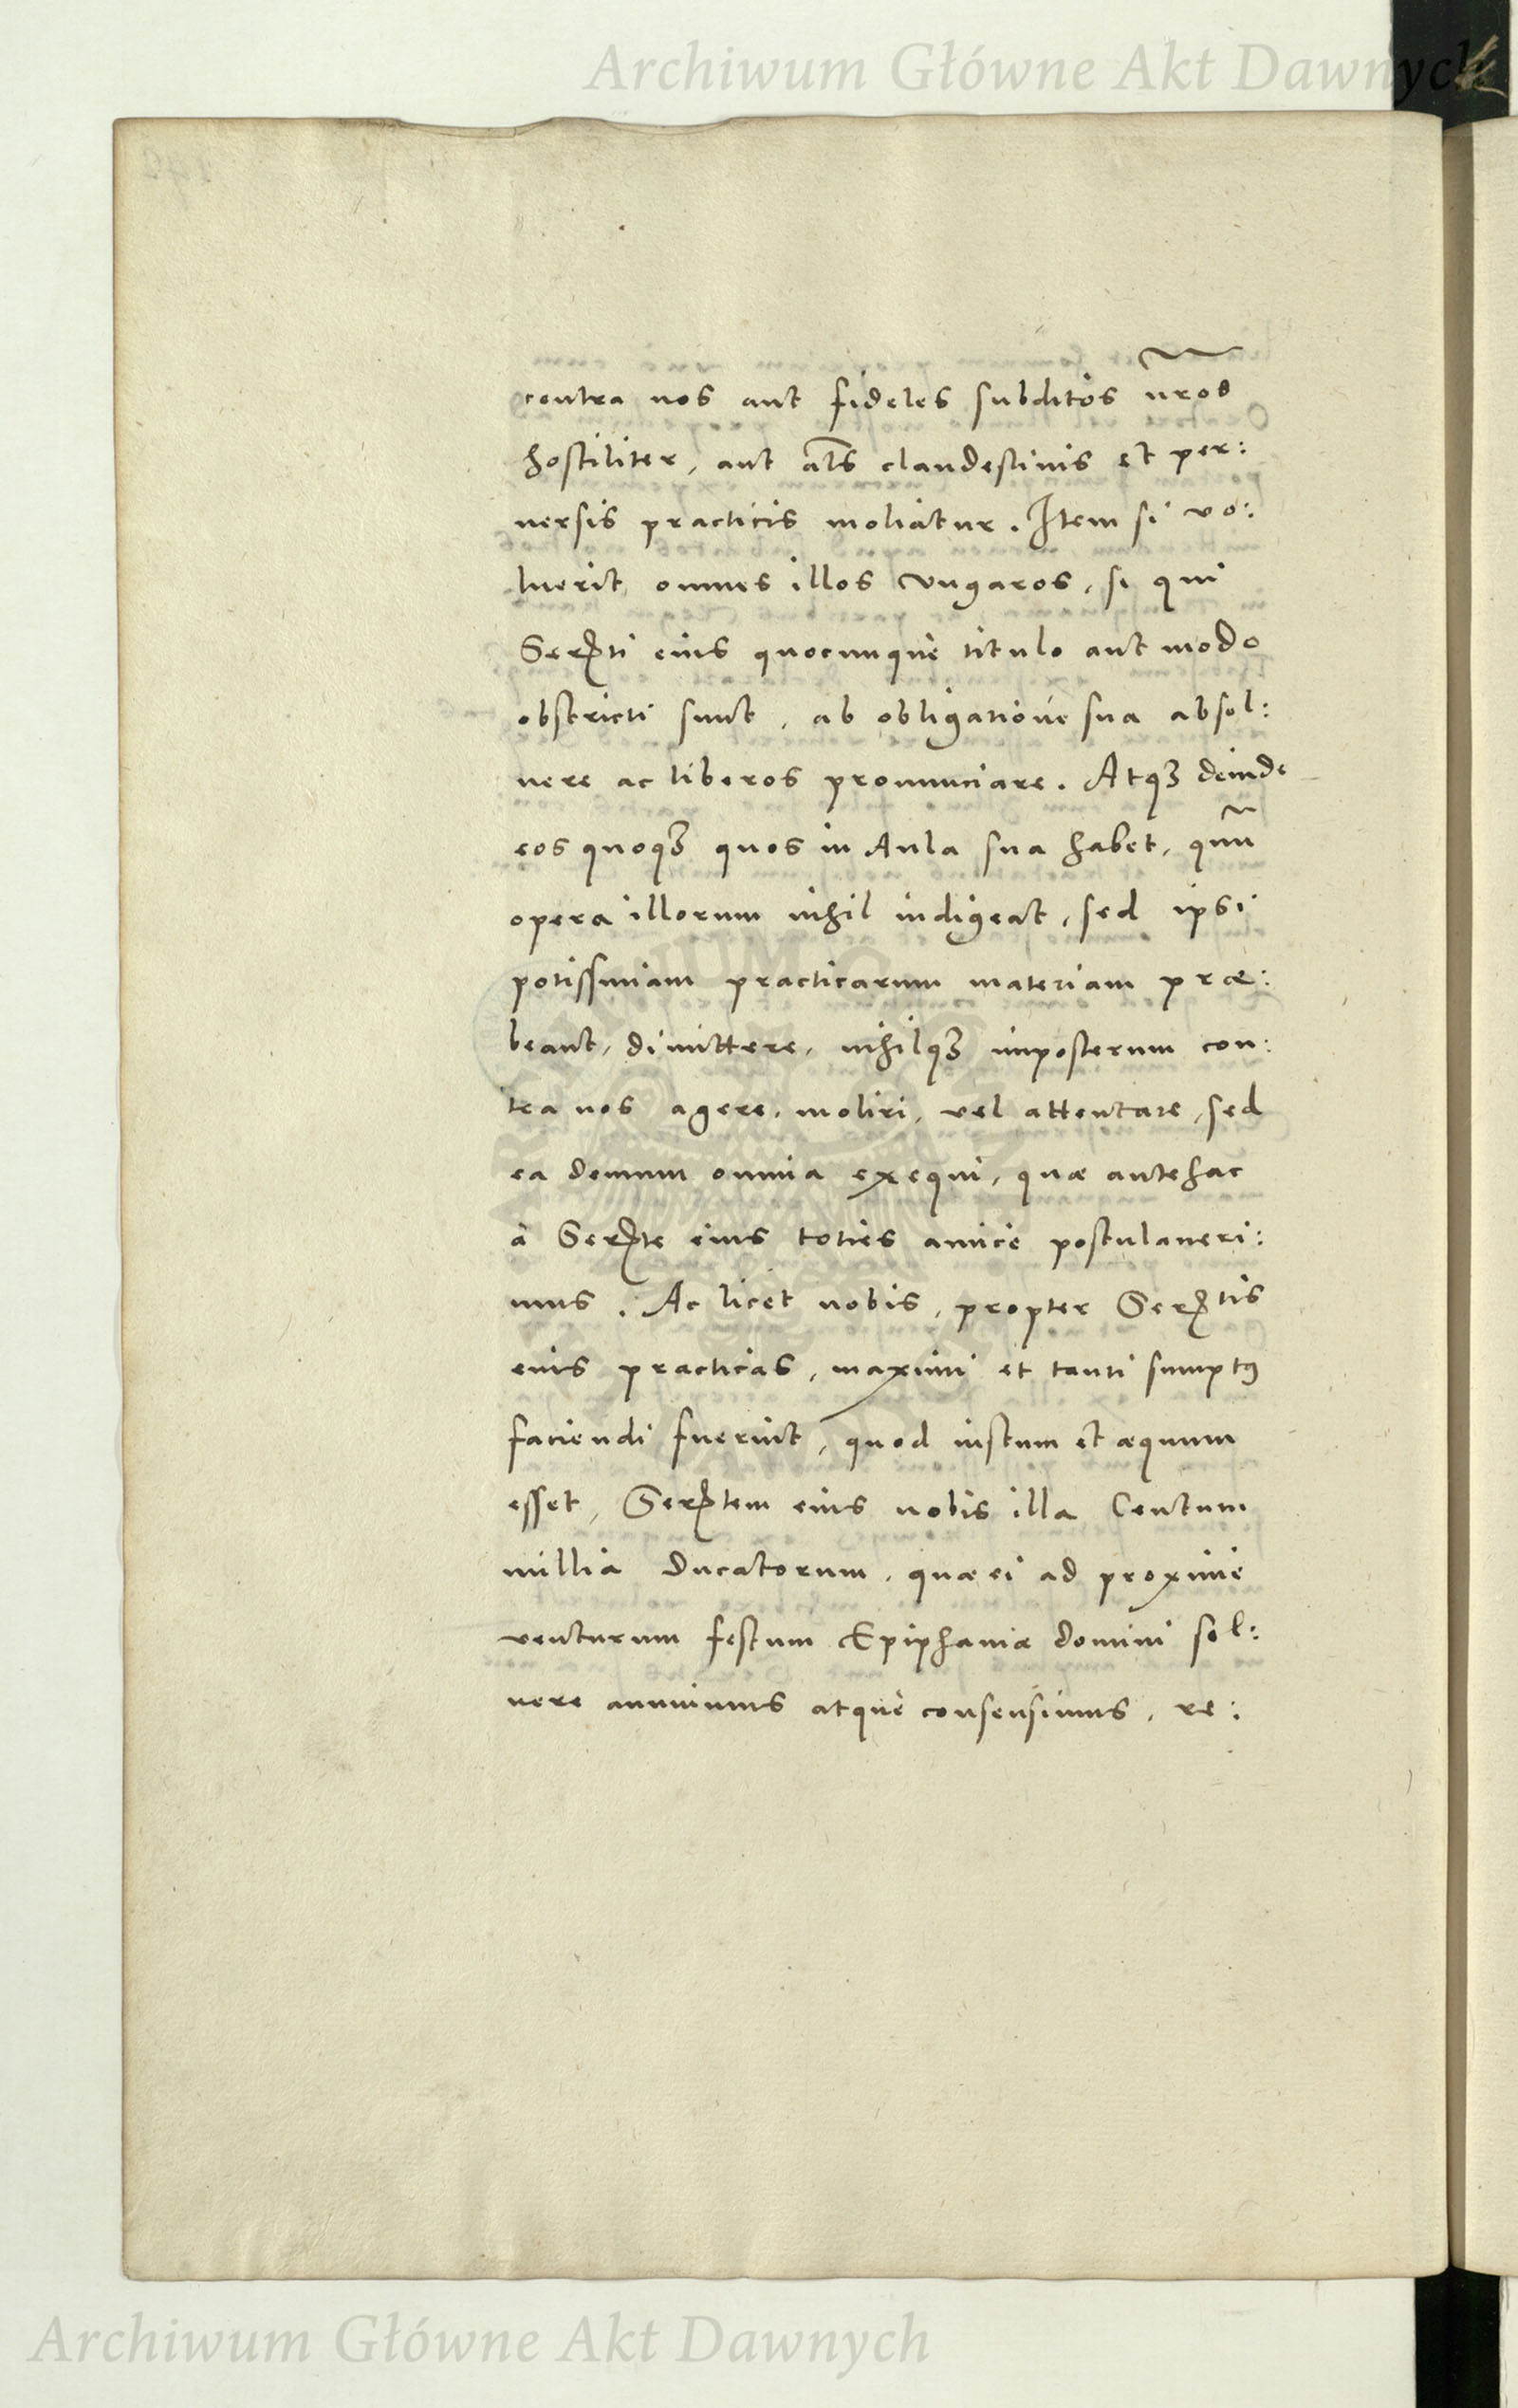 Archiwum Główne Akt Dawnych
contra nos aut fideles subditos nr̃os
hostiliter, aut al̃s clandestinis et per:
uersis practicis moliatur. Item si vo:
luerit omnes illos Vngaros, si qui
Serp̃ti eius quocunque titulo aut modo
obstricti sunt, ab obligatione sua absol:
uere ac liberos pronunciare. Atqꝫ deinde
eos quoqꝫ quos in Aula sua habet, qũn
opera illorum nihil indigeat, sed ipsi
potissimam practicarum materiam præ:
beant, dimittere, nihilqꝫ imposterum con:
tra nos agere, moliri, vel attentare, sed
ea demum omnia exequi, quæ antehac
à Serp̃te eius toties amice postulaueri:
mus. Ac licet nobis, propter Serp̃tis
eius practicas, maximi et tanti sumptꝰ
faciendi fuerint, quod iustum et æquum
esset, Serp̃tem eius nobis illa Centum
millia Ducatorum, quæ ei ad proxime
venturum festum Epiphaniæ domini sol:
uere annuimus atque consensimus, re:
Archiwum Główne Akt Dawnych